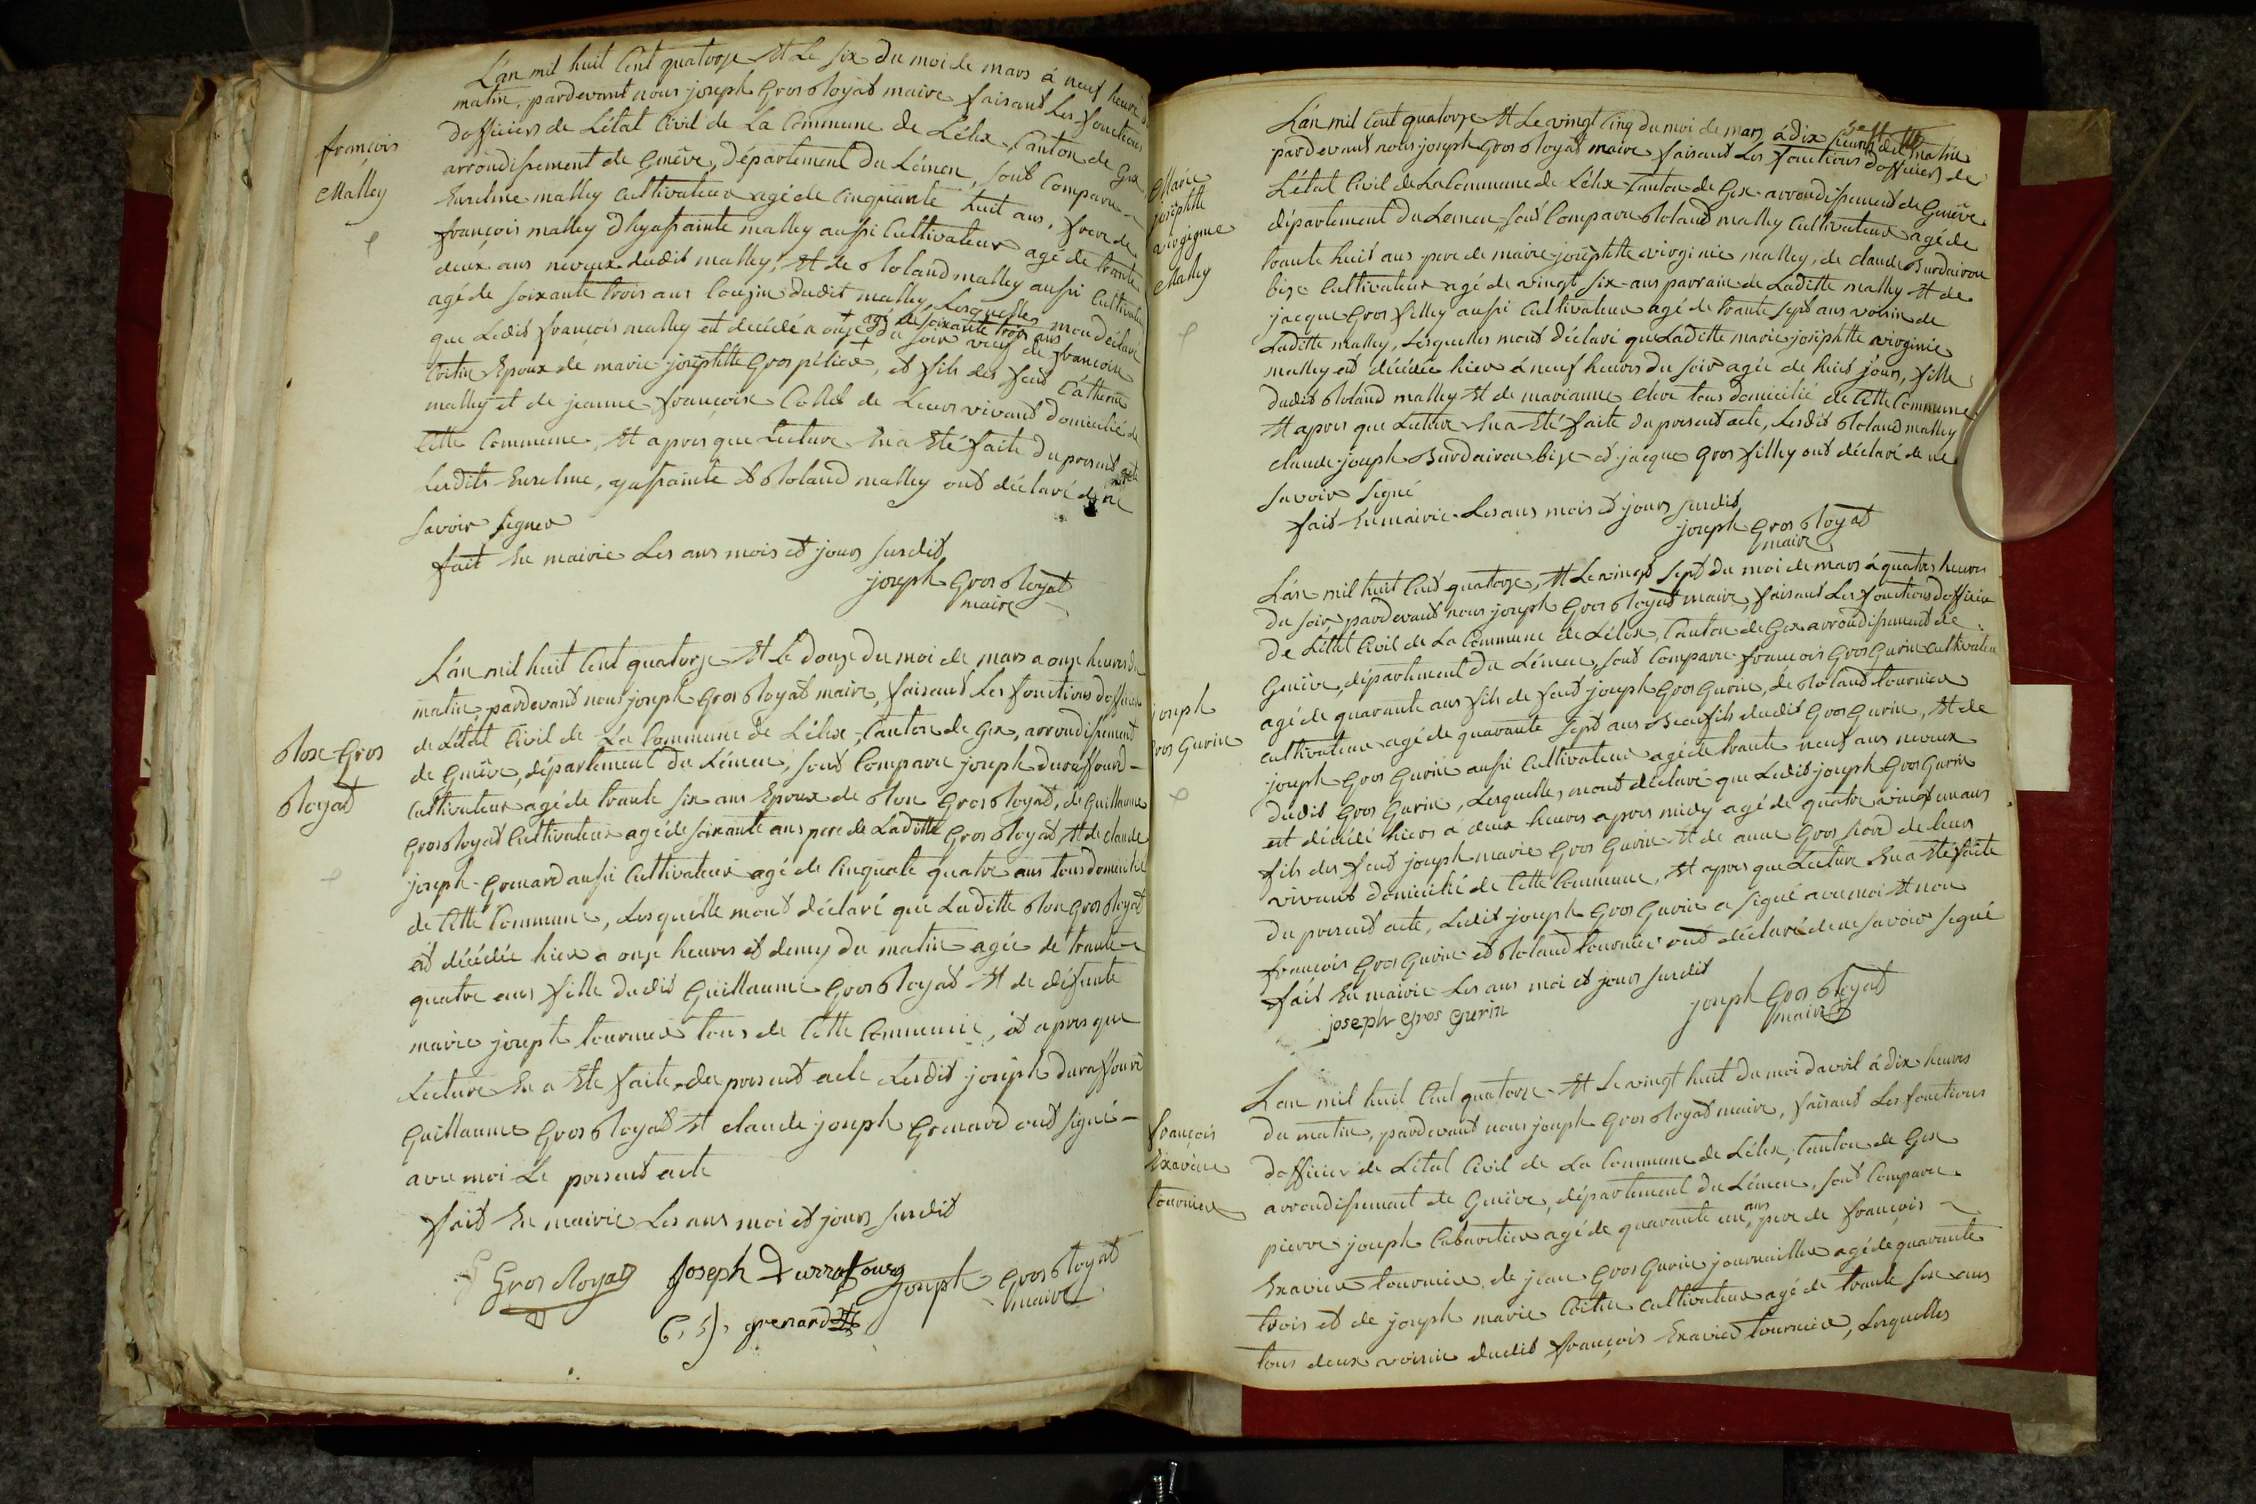 L'an mil huit Cent quatorze Et Le six du moi de mars á neuf heures du
matin, pardevant nous joseph Gros Royat maire faisant Les fonctions
d'officiers de L'état Civil de La Commune de Lélex, Canton de Gex
arrondissement de Genève, département du Léman, sont Comparu
François
Malley
Enselme malley Cultivateur agé de Cinquante huit ans, frere de
françois malley d'hyassainte malley aussi Cultivateur agé de trante
deux ans neveux dudit malley, Et de Roland malley aussi Cultivateur
agé de soixante trois ans Cousin dudit malley, Lesquelles mon déclaré
que Ledit françois malley est decédé a onze du soir
agé de soixante trois ans
Coitin Epoux de marie josephtte Gros pélier, et fils des feut
malley et de jeanne françoise Collet de Leurs vivant domicilié de
Cette Commune, Et apres que Lecture En a Eté faite du present acte
Lesdits Enselme, yassainte et Roland malley ont déclaré de ne
savoir signer
fait En mairie Les ans mois et jours susdit
joseph Gros Royat
maire
L'an mil huit Cent quatorze Et Le douze du moi de mars a onze heures du
matin pardevant nous joseph Gros Royat maire, faisant Les fonctions d'officier
de L'état Civil de La Commune de Lélex, Canton de Gex, arrondissement
Rose Gros
Royat
de Genève, département du Léman, sont Comparu joseph duraffourd
Cultivateur agé de trante six ans Epoux de Rose Gros Royat, de Guillaume
Gros Royat Cultivateur agé de soixante ans pere de Laditte Gros Royat Et de claude
joseph Grenard aussi Cultivateur agé de Cinquate quatre ans tous domicilié
de Cette Commune, Lesquelle mont déclaré que Laditte Rose Gros Royat
est décédée hier a onze heures et demy du matin agée de trante
quatre ans fille dudit Guillaume Gros Royat Et de défunte
marie joseph tournier tous de Cette Commune, et apres que
Lecture En a Ete faite du present acte Lesdit joseph duraffourd
Guillaume Gros Royat Et claude joseph Grenard ont signé
avec moi Le present acte
fait En mairie Les ans moi et jours susdit
Gros Royat Joseph Durraffourg joseph Gros Royat
maire
C, J, grenard
L'an mil Cent quatorze Et Le vingt Cinq du moi de mars á dix heures du matin
pardevant nous joseph Gros Royat maire faisant Les fonctions d'officiers de
L'état Civil de La Commune de Lélex Canton de Gex arrondissement de Genève
Marie
josephtte
virgigine
Malley
département du Leman, sont Comparu Roland malley Cultivateur agé de
trante huit ans pere de marie josephtte virginie malley, de claude Burdairon
bize Cultivateur agé de vingt six ans parrain de Laditte malley Et de
jacque Gros filley aussi Cultivateur agé de trante sept ans voisin de
Laditte malley, Lesquelles mont déclaré que Laditte marie josephtte virginie
malley est décédée hier á neuf heures du soir agée de huit jours, fille
dudit Roland malley Et de marianne tous domicilié de Cette Commune
Et apres que Lecture En a Eté faite du present acte, Lesdit Roland malley
claude joseph Burdairon bize et jacque Gros filley ont déclaré de ne
savoir signé
fait En mairie Les ans mois et jours susdit
joseph Gros Royat
maire
L'an mil huit Cent quatorze, Et Le vingt sept du moi de mars á quatres heures
du soir, pardevant nous joseph Gros Royat maire, faisant Les fonctions d'officier
De L'état Civil de La Commune de Lélex, Canton de Gex arrondissement de
Genève, département du Léman, sont Comparu françois Gros Gurin Cultivateur
joseph
Gros Gurin
agé de quarante ans fils de feut joseph Gros Gurin, de Roland tournier
cultivateur agé de quarante sept ans Beaufils dudit Gros Gurin, Et de
joseph Gros Gurin aussi Cultivateur agé de trante neuf ans neveux
dudit Gros Gurin, Lesquelles mont déclaré que Ledit joseph Gros Gurin
est décédé hiers á deux heures apres midy agé de quatre vingt un ans
fils des feut joseph marie Gros Gurin Et de anne Gros piord de leurs
vivant domicilié de Cette Commune, Et apres que Lecture En a Eté faite
du present acte, Ledit joseph Gros Gurin a signé avec moi Et non
françois Gros Gurin et Roland tournier ont déclaré de ne savoir signé
fait En mairie Les ans moi et jours susdit
joseph Gros Gurin
joseph Gros Royat
maire
L'an mil huit Cent quatorze Et Le vingt huit du moi d'avril á dix heures
du matin, pardevant nous joseph Gros Royat maire, faisant Les fonctions
françois
Exavier
tournier
d'officier de L'état Civil de La Commune de Lélex, Canton de Gex
arrondissement de Genève, département du Léman, sont Comparu
pierre joseph Cabaretier agé de quarante un ans, pere de françois
Exavier tournier, de jean Gros Gurin journaillier agé de quarante
trois et de joseph marie Coitin cultivateur agé de trante six ans
tous deux voisin dudit françois Exavier tournier, Lesquelles